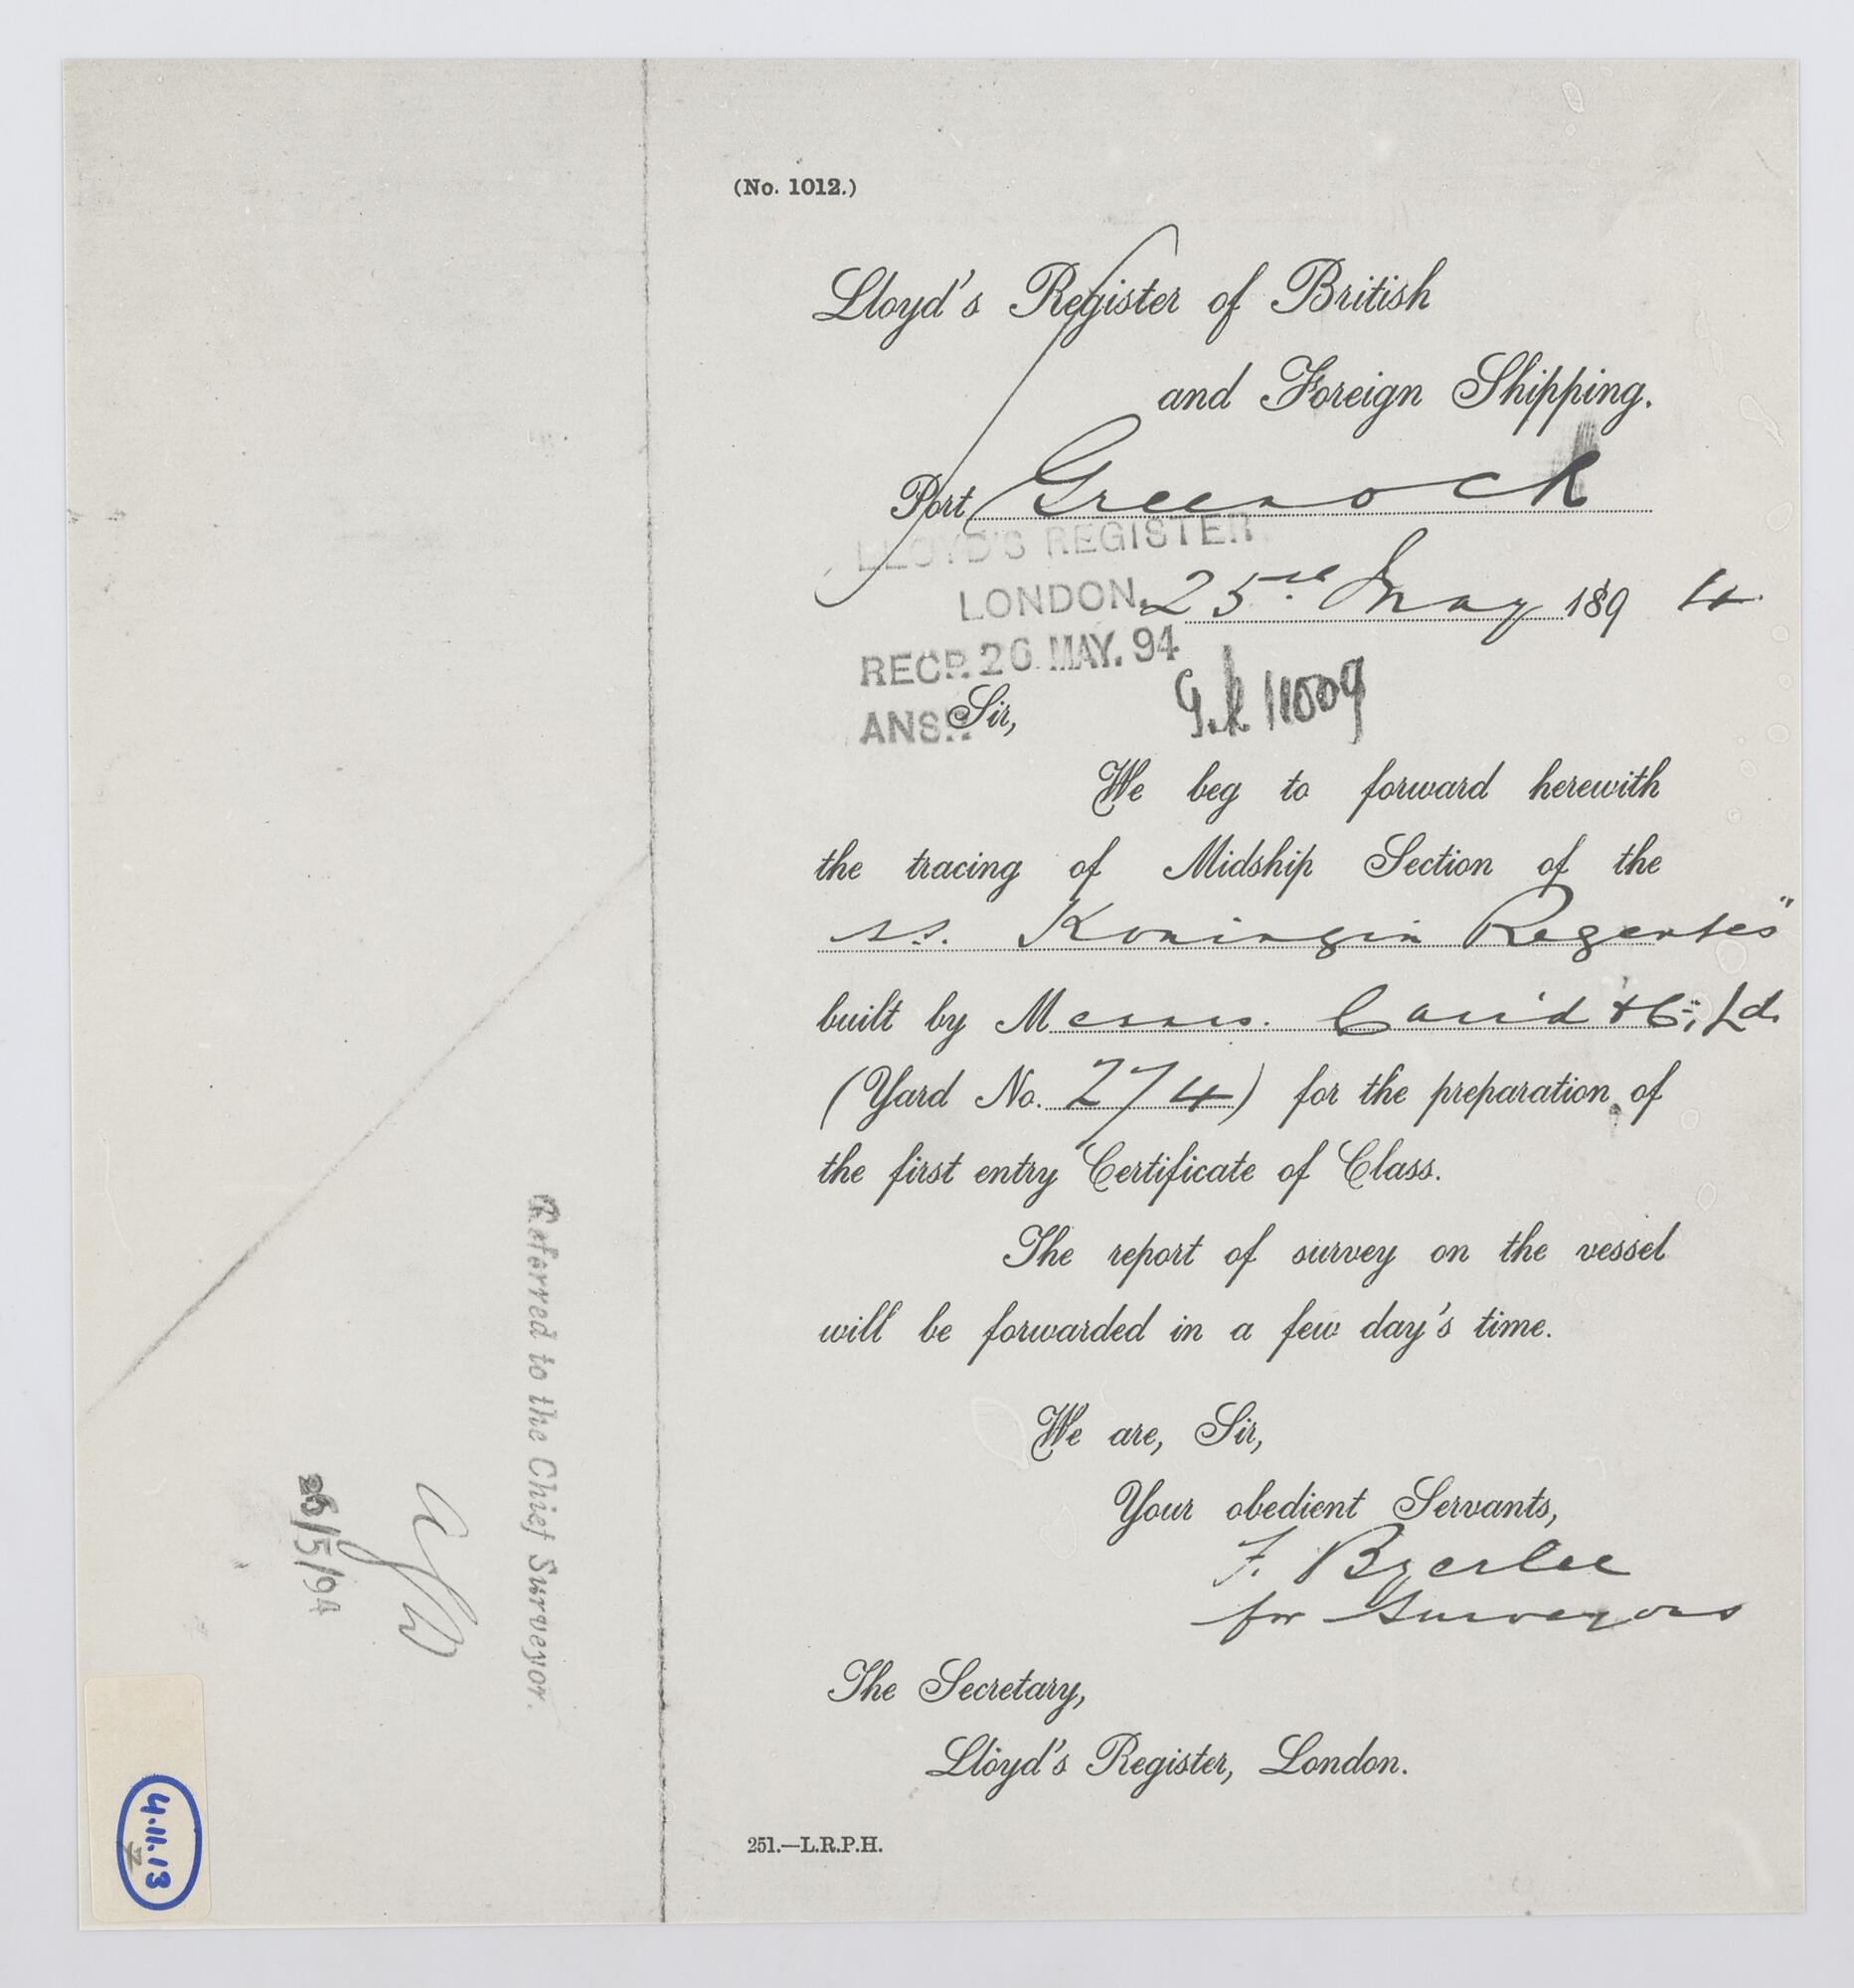 (No. 1012.)
Lloyd's Register of British
and Foreign Shipping.
Port Greenock
LLOYD'S REGISTER
LONDON.
25th May 1894
RECD. 26 MAY. 94
ANSD.
Sir,
Gk 11009
We beg to forward herewith
the tracing of Midship Section of the
s.s. Koningin Regentes"
built by Messrs. Caird & Co., Ld.
(Yard No. 274) for the preparation of
the first entry Certificate of Class.
The report of survey on the vessel
will be forwarded in a few day's time.
We are, Sir,
Your obedient Servants,
F. Byerlee
for Surveyors
The Secretary,
Lloyd's Register, London.
251.—L.R.P.H.
Referred to the Chief Surveyor.
26/5/94
4.11.13